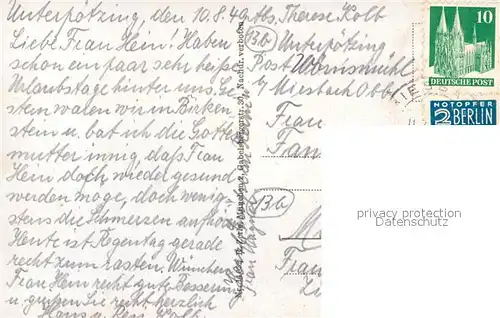 Unterpötzing, den 10.8.49
Liebe Frau Hein! Haben
schon ein paar sehr heiße
Urlaubstage hinter uns. Ge-
stern waren wir in Birken-
stein u. bat ich die Gottes-
mutter innig, daß Frau
Hein doch wieder gesund
werden möge, doch wenig-
stens die Schmerzen aufhör
Heute ist Regentag gerade
recht zum rasten. Wünschen
Frau Hein recht gute Besserung
u. grüßen Sie recht herzlich
Hans u. Resi Kolb
Abs. Therese Kolb
(13b) Unterpötzing
Post Wörnsmühl
b/ Miesbach Obb
Frau
(13b)
Frau
10
DEUTSCHE POST
NOTOPFER
2 BERLIN
privacy protection
PRIVACY PROTECTION